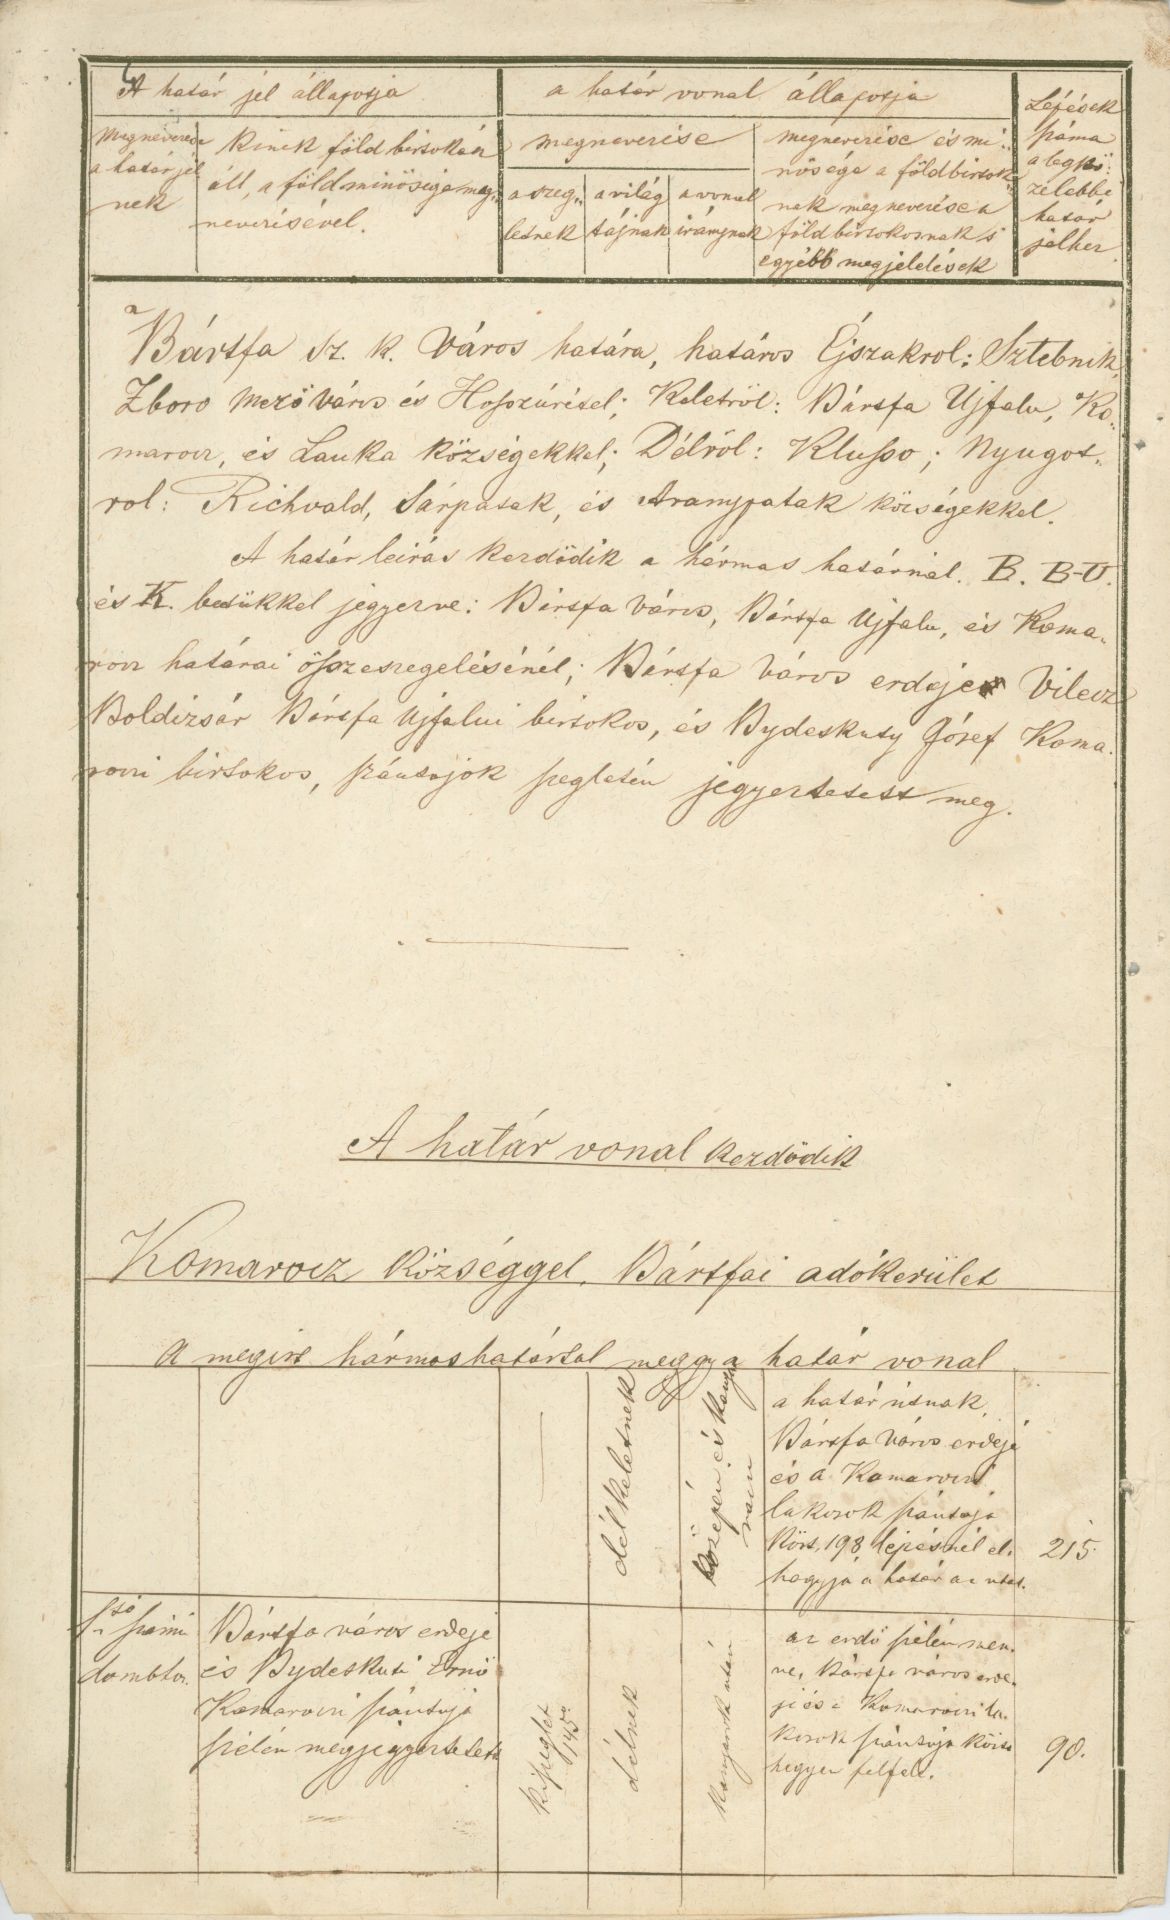 A határ jel állapotja
a határ vonal állapotja
Lépések
száma
a legkö:
zelebbi
határ
jelhez.
Megnevezése
a határjel
nek
Kinek földbirtokán
áll, a föld minősége meg„
nevezésével.
megnevezése
a szeg„
letnek
a világ
tájnak
a vonal
iránynak
megnevezése és mi„
nősége a földbirtok„
nak megnevezése a
földbirtokosnak s
egyébb megjelelések
Bártfa sz. k. Város határa, határos Éjszakrol: Sztebnik,
Zboro Mező Város és Hosszúrétel; Keletröl: Bártfa Ujfalu, Ko„
marocz, és Lauka Községekkel; Délröl: Klusso; Nyugot„
rol: Richvald, Sárpatak, és Aranypatak községekkel.
A határ leirás kezdödik a hármas határnál. B. B-U.
és K. betükkel jegyezve: Bártfa Város, Bártfa Ujfalu, és Koma„
rocz határai összeszegelésénél; Bártfa Város erdeje Vilecz
Boldizsár Bártfa Ujfalui birtokos, és Bydeskuty Jósef Koma„
roczi birtokos, szántojok szegletén jegyeztetett meg.
A határ vonal kezdödik
Komarocz Községgel. Bártfai adókerület
A megirt hármas határtol meggy a határ vonal
—
délkeletnek
középén és Kanya
rocn
a határ útnak,
Bártfa Város erdejé
és a Komaroczi
lakosok szántoja
közt, 198 lépésnél el„
hagyja a határ az utat.
215.
1ső számú
domb
Bártfa város erdeje
és Bydeskuti Ernö
Komaroczi szántoja
szélén megjegyeztetett
Kiszeglet
145°
délnek
Kanyarok után
az erdö szélén men„
ve, Bártfa város erde„
je és a Komaroczi la„
kosok szántoja közt
hegyen felfelé.
90.